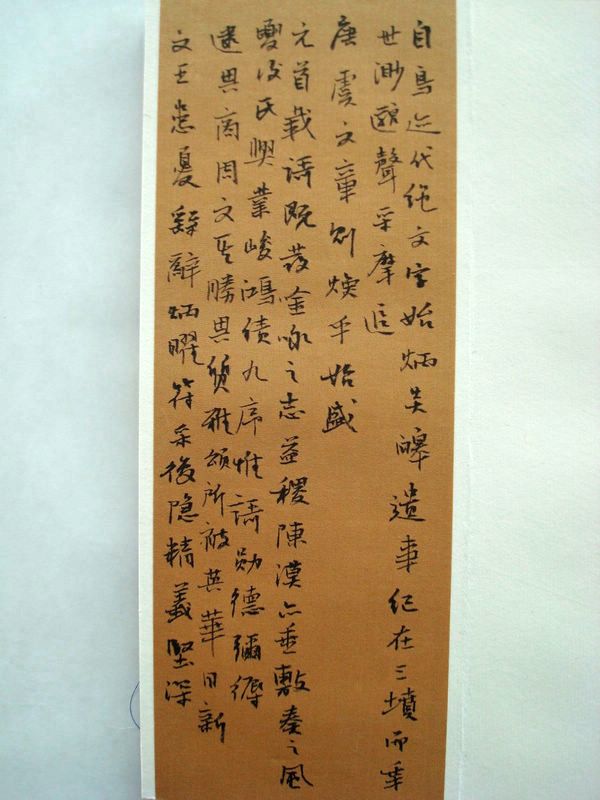 自鳥迹代绳文字始炳炎皞遺事纪在三墳而年
世渺邈聲采靡追
唐虞文章則焕乎始盛
元首載謌既發吟詠之志益稷陳謨亦垂敷奏之風
夏後氏興業峻鴻績九序惟謌勛德彌縟
逮及商周文勝其質雅頌所被英華日新
文王患憂繇辭炳曜符采複隐精義堅深